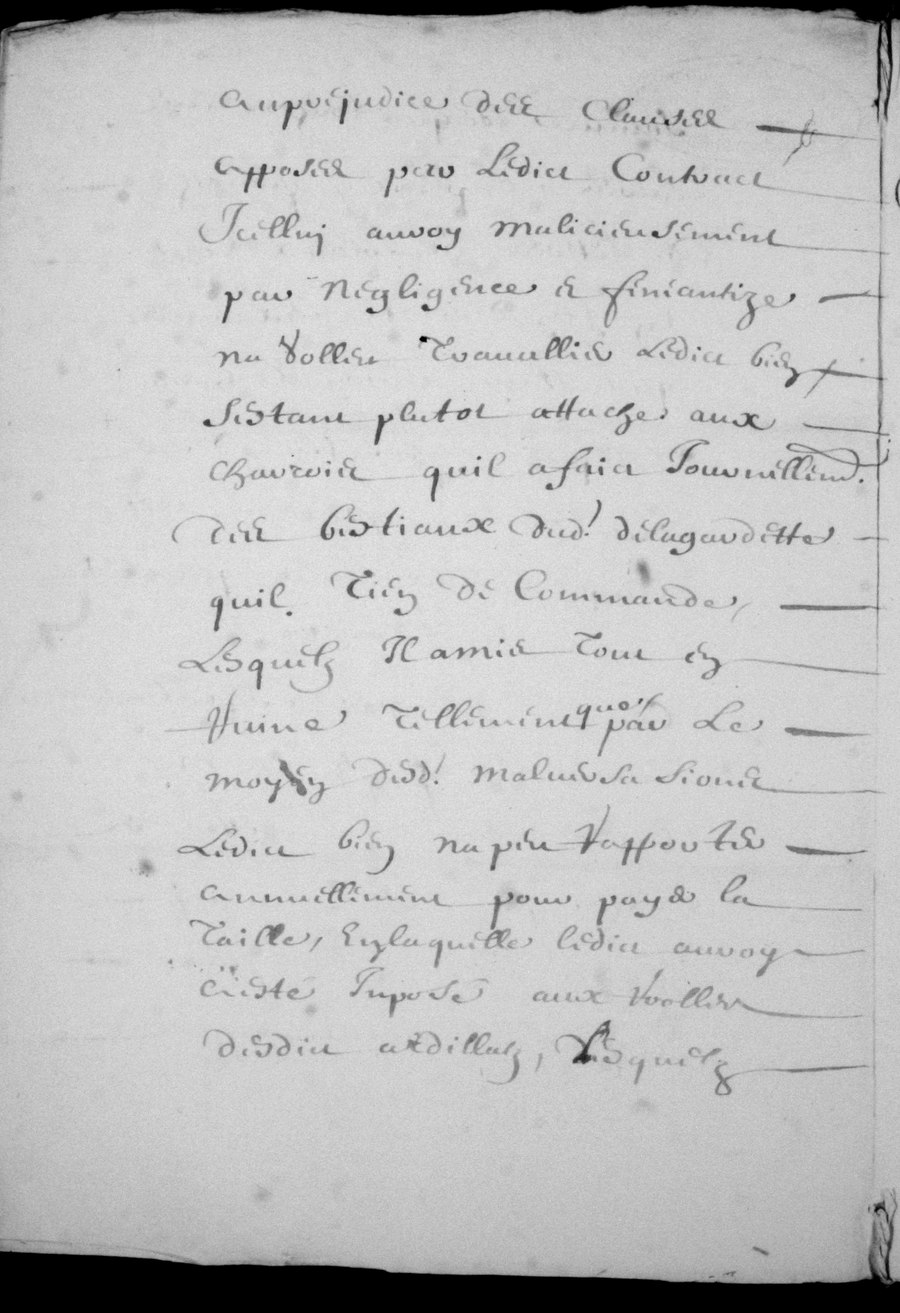 au prejudice des Clauses
apposés par Ledict Contract
Icelluj auroy malicieusement
par negligence et feneantize
na Vollu Travallier Ledict bien
sestant plutot attache aux
charrois quil a faict Journellemt.
des bestiaux dud! delagardette
quil. Tien de Commande,
Lesquelz Il a mis Tout en
Ruine Tellement que par Le
moyen desd! malversasions
Ledict bien na peu Rapporter
annuellement pour payer la
Taille, En laquelle ledict auroy
a esté Imposé aux Roolles
desdict ardillatz, Lesquelz